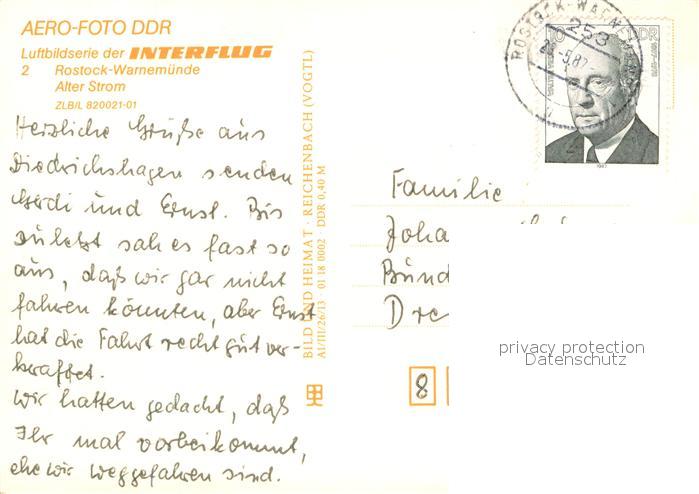 AERO-FOTO DDR
Luftbildserie der INTERFLUG
2 Rostock-Warnemünde
Alter Strom
ZLB/L 820021-01
Herzliche Grüße aus
Diedrichshagen senden
Gerdi und Ernst. Bis
zuletzt sah es fast so
aus, daß wir gar nicht
fahren könnten, aber Ernst
hat die Fahrt recht gut ver-
kraftet.
Wir hatten gedacht, daß
Ihr mal vorbeikommt,
ehe wir weggefahren sind.
BILD UND HEIMAT · REICHENBACH (VOGTL)
A1/III/26/13 01 18 0002 DDR 0,40 M
ROSTOCK-WARNEMÜNDE
253
10 DDR
1987
Familie
Joha
Bünd
Dre
8
privacy protection
Datenschutz